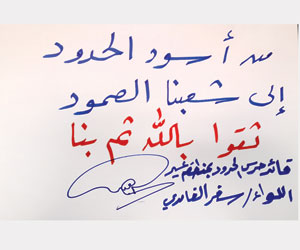 من أسود الحدود
إلى شعبنا الصمود
ثقوا بالله ثم بنا
قائد حرس الحدود بمنطقة عسير
اللواء/ سفر الغامدي